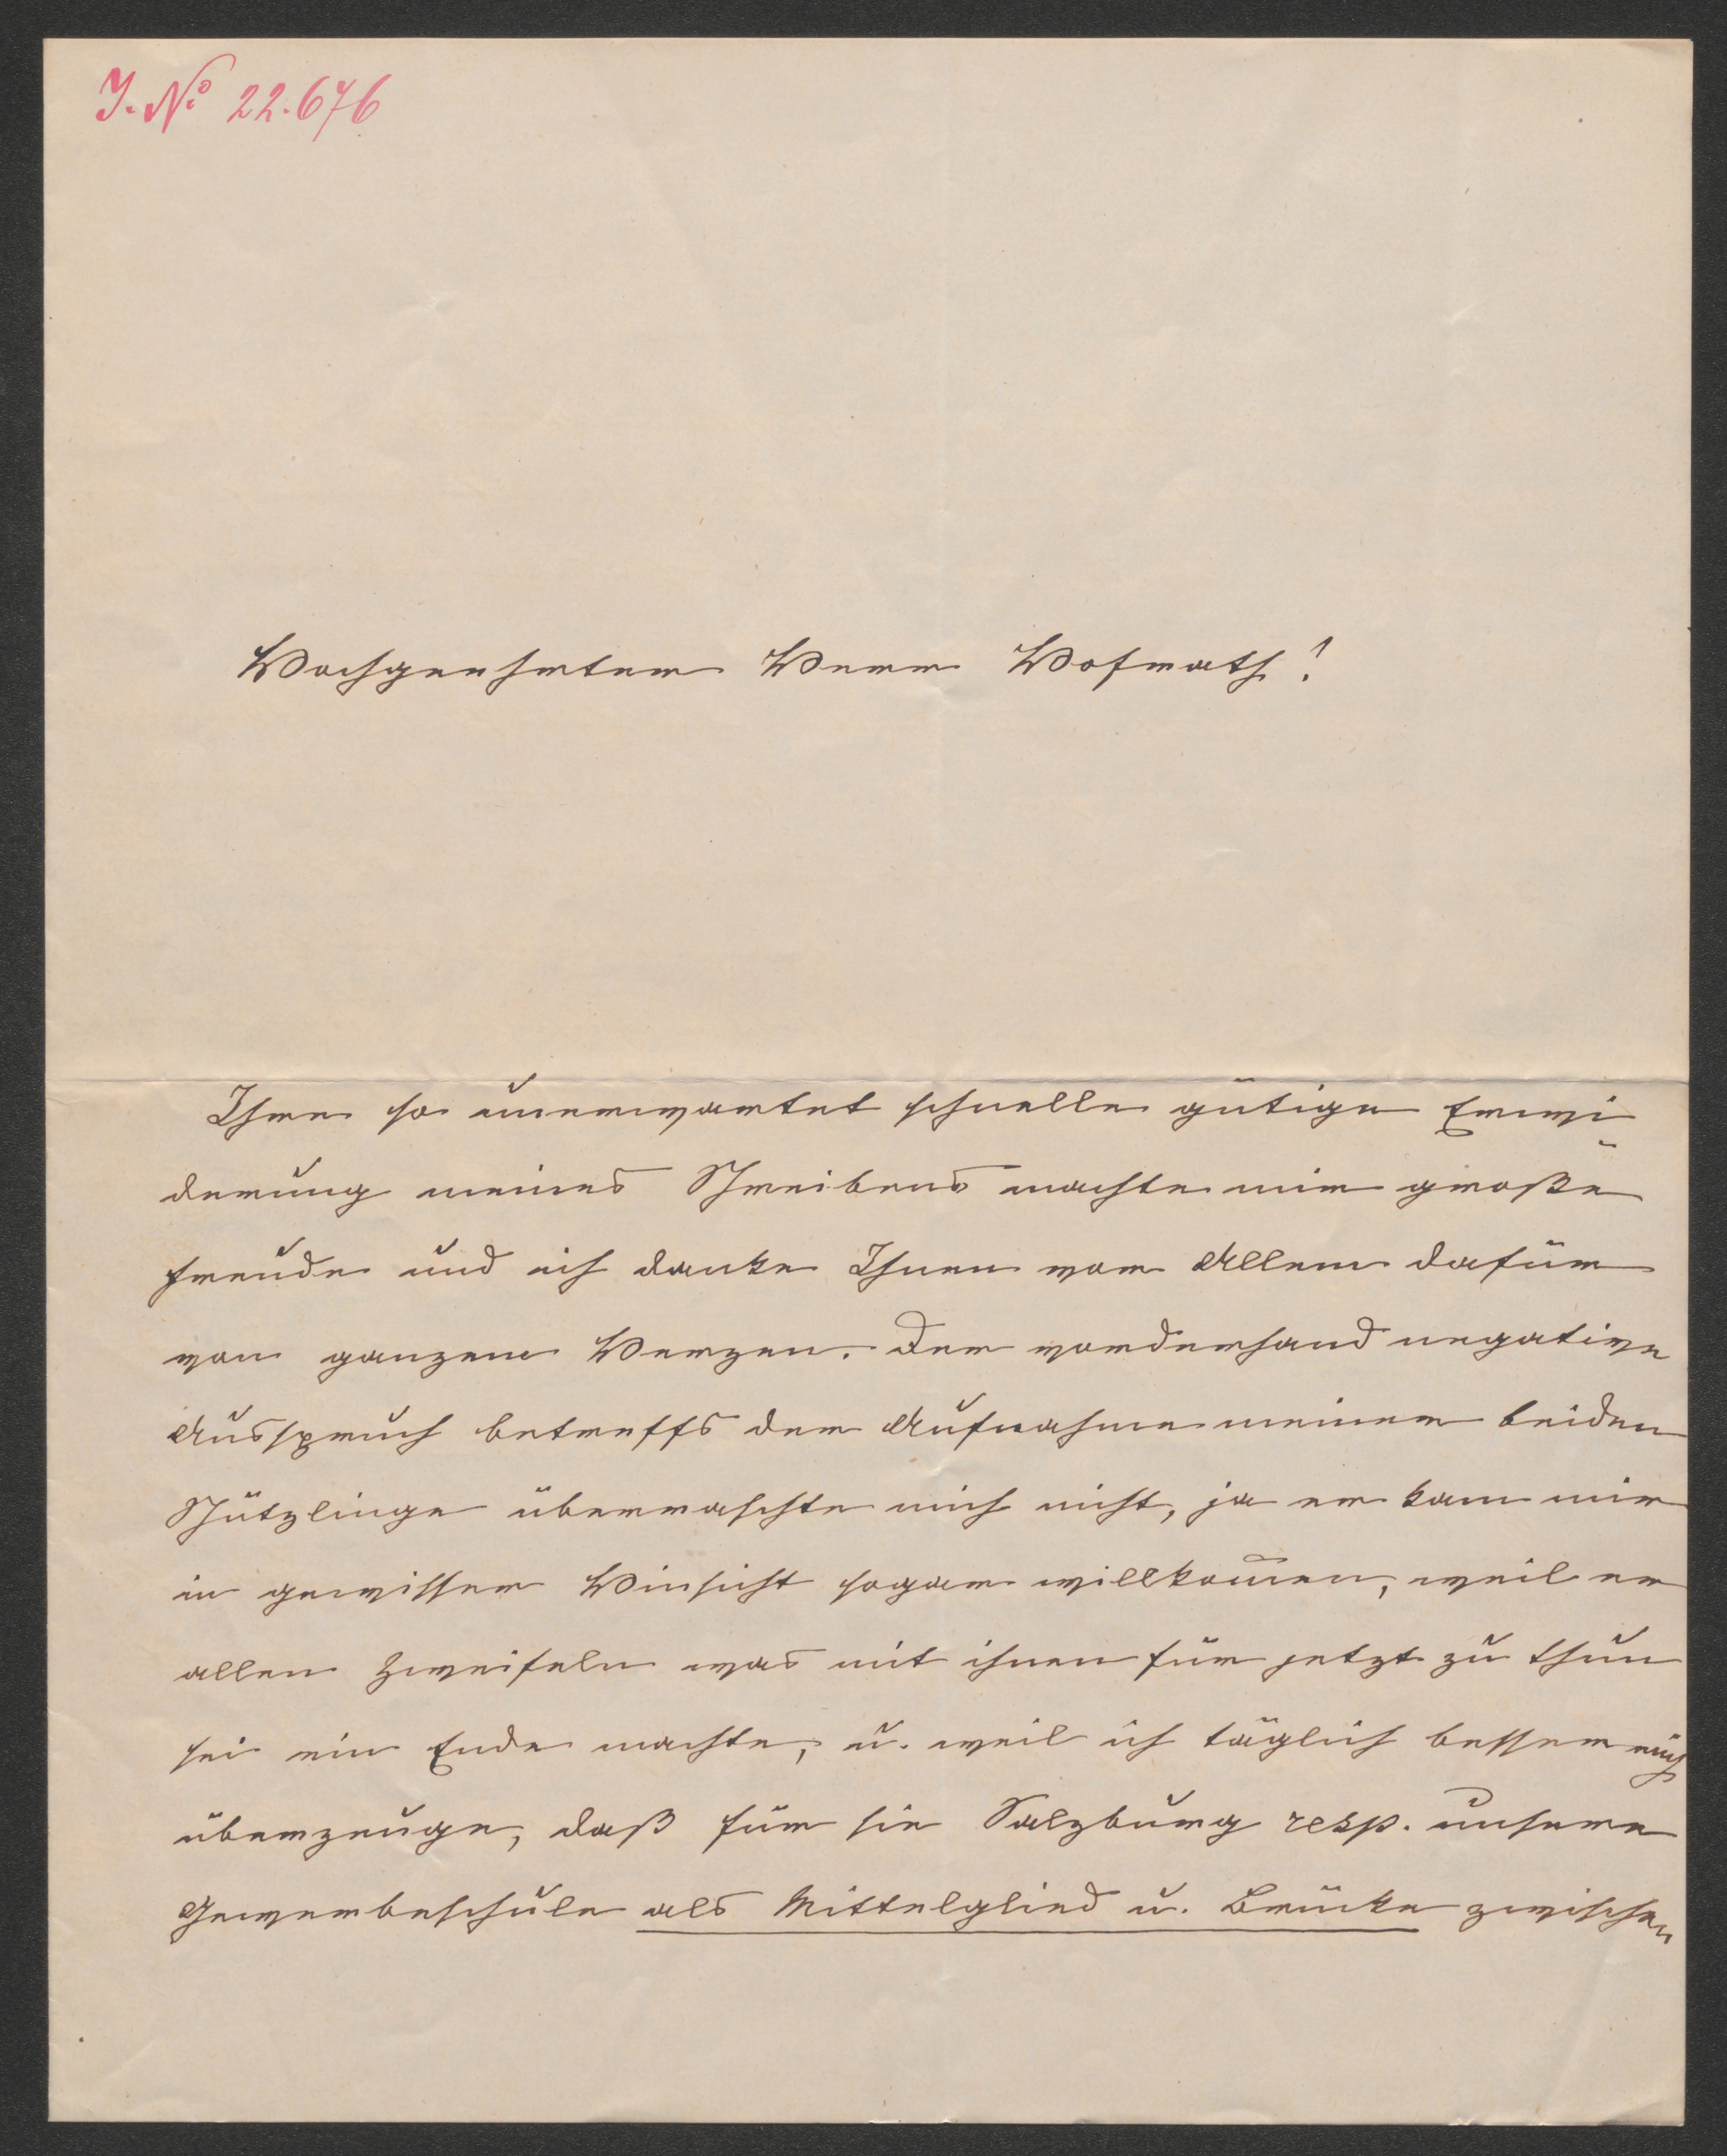 J. No 22.676
Hochgeehrter Herr Hofrath!
Ihre so unerwartet schnelle gütige Erwi
derung meines Schreibens machte mir große
Freude und ich danke Ihnen vor Allem dafür
von ganzem Herzen. Der vorderhand negative
Ausspruch betreffs der Aufnahme meiner beiden
Schützlinge überraschte mich nicht, ja er kam mir
in gewisser Hinsicht sogar willkom̅en, weil er
allen Zweifeln was mit ihnen für jetzt zu thun
sei ein Ende machte, u. weil ich täglich besser mich
überzeuge, daß für sie Salzburg resp. unsere
Gewerbeschule als Mittelglied u. Brücke zwischen